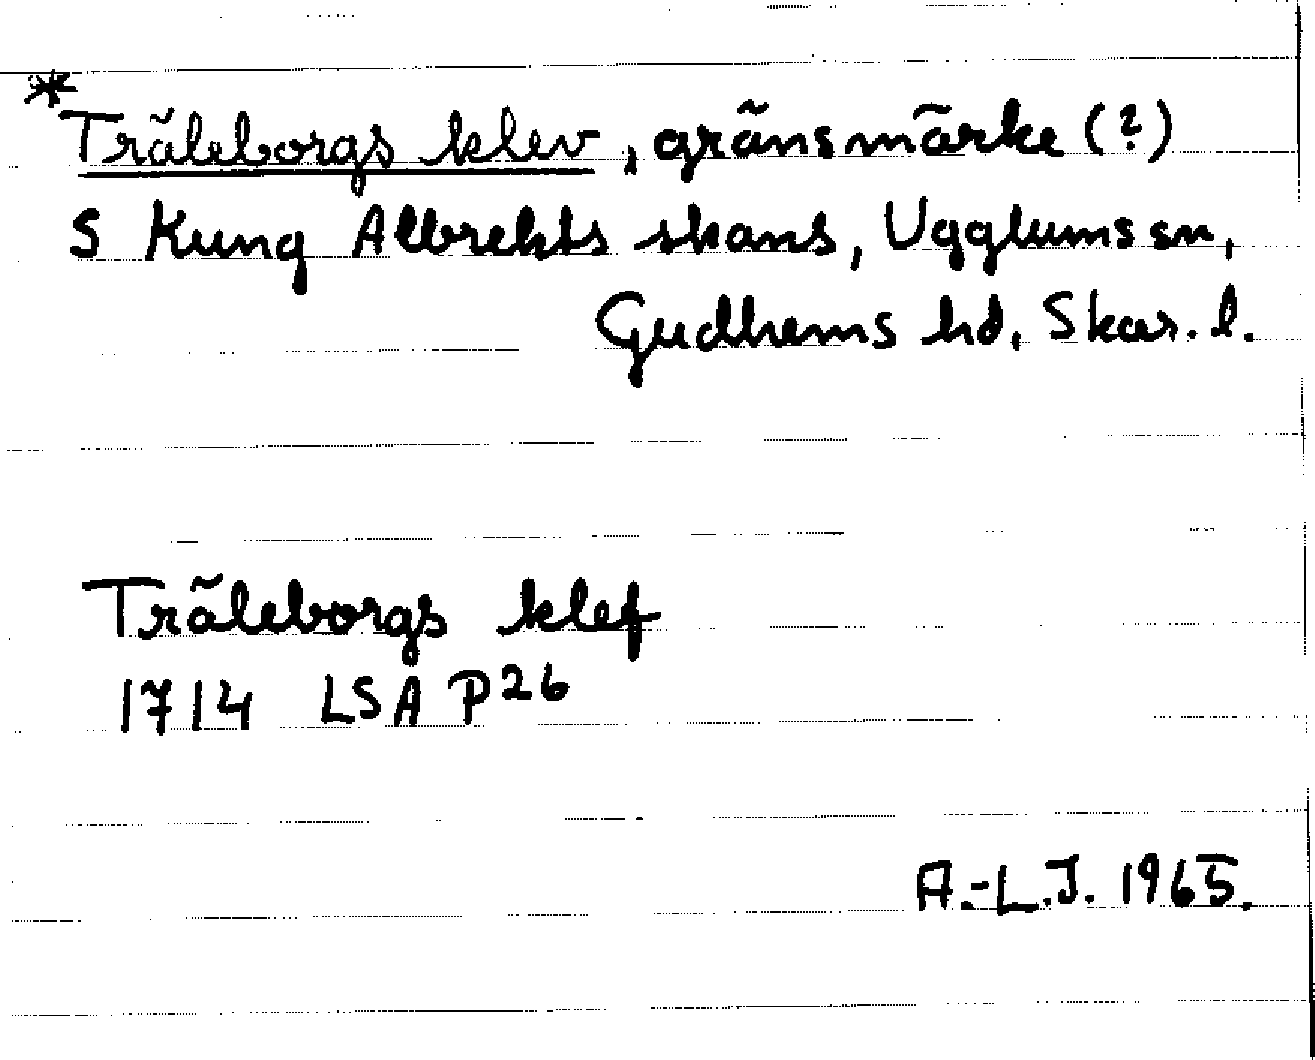 *Träleborgs klev, gränsmärke (?)
S Kung Albrekts skans, Ugglums sn,
Gudhems hd, Skar. l.
Träleborgs klef
1714 LSA P26
A.-L.J. 1965.